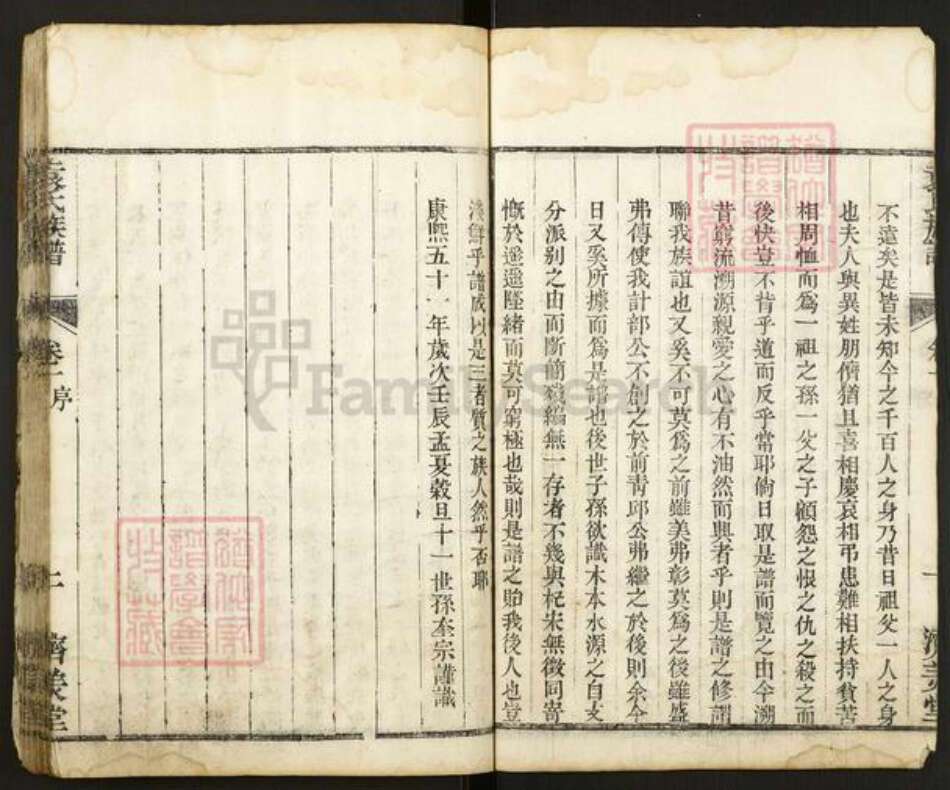 不遠矣是皆未知今之千百人之身乃昔日祖父一人之身
也夫人與異姓朋儕猶且喜相慶哀相弔患難相扶持貧苦
相周恤而爲一祖之孫一父之子傾怨之恨之仇之殺之而
後快豈不肯乎道而反乎常耶倘日取是譜而覽之由今溯
昔窮流溯源親愛之心有不油然而興者乎則是譜之修謂
聯我族誼也又奚不可莫爲之前雖美弗彰莫爲之後雖盛
弗傳使我計部公不創之於前靑邱公弗繼之於後則余今
日又奚所據而爲是譜也後世子孫欲識木本水源之自支
分派别之由而斷簡殘編無一存者不幾與杞宋無徵同寄
慨於遥遥墜緒而莫可窮極也哉則是譜之貽我後人也豈
淺鮮乎譜成以是三者質之族人然乎否耶
康熙五十一年歲次壬辰孟夏穀旦十一世孫奎宗謹識
袁氏族譜
卷一序
二
濟美堂
FamilySearch